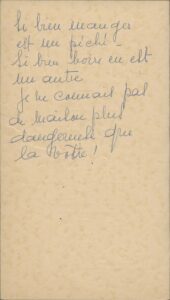 Si bien manger
est un péché -
Si bien boire en est
un autre
je ne connais pas
de maison plus
dangereuse que
la vôtre !